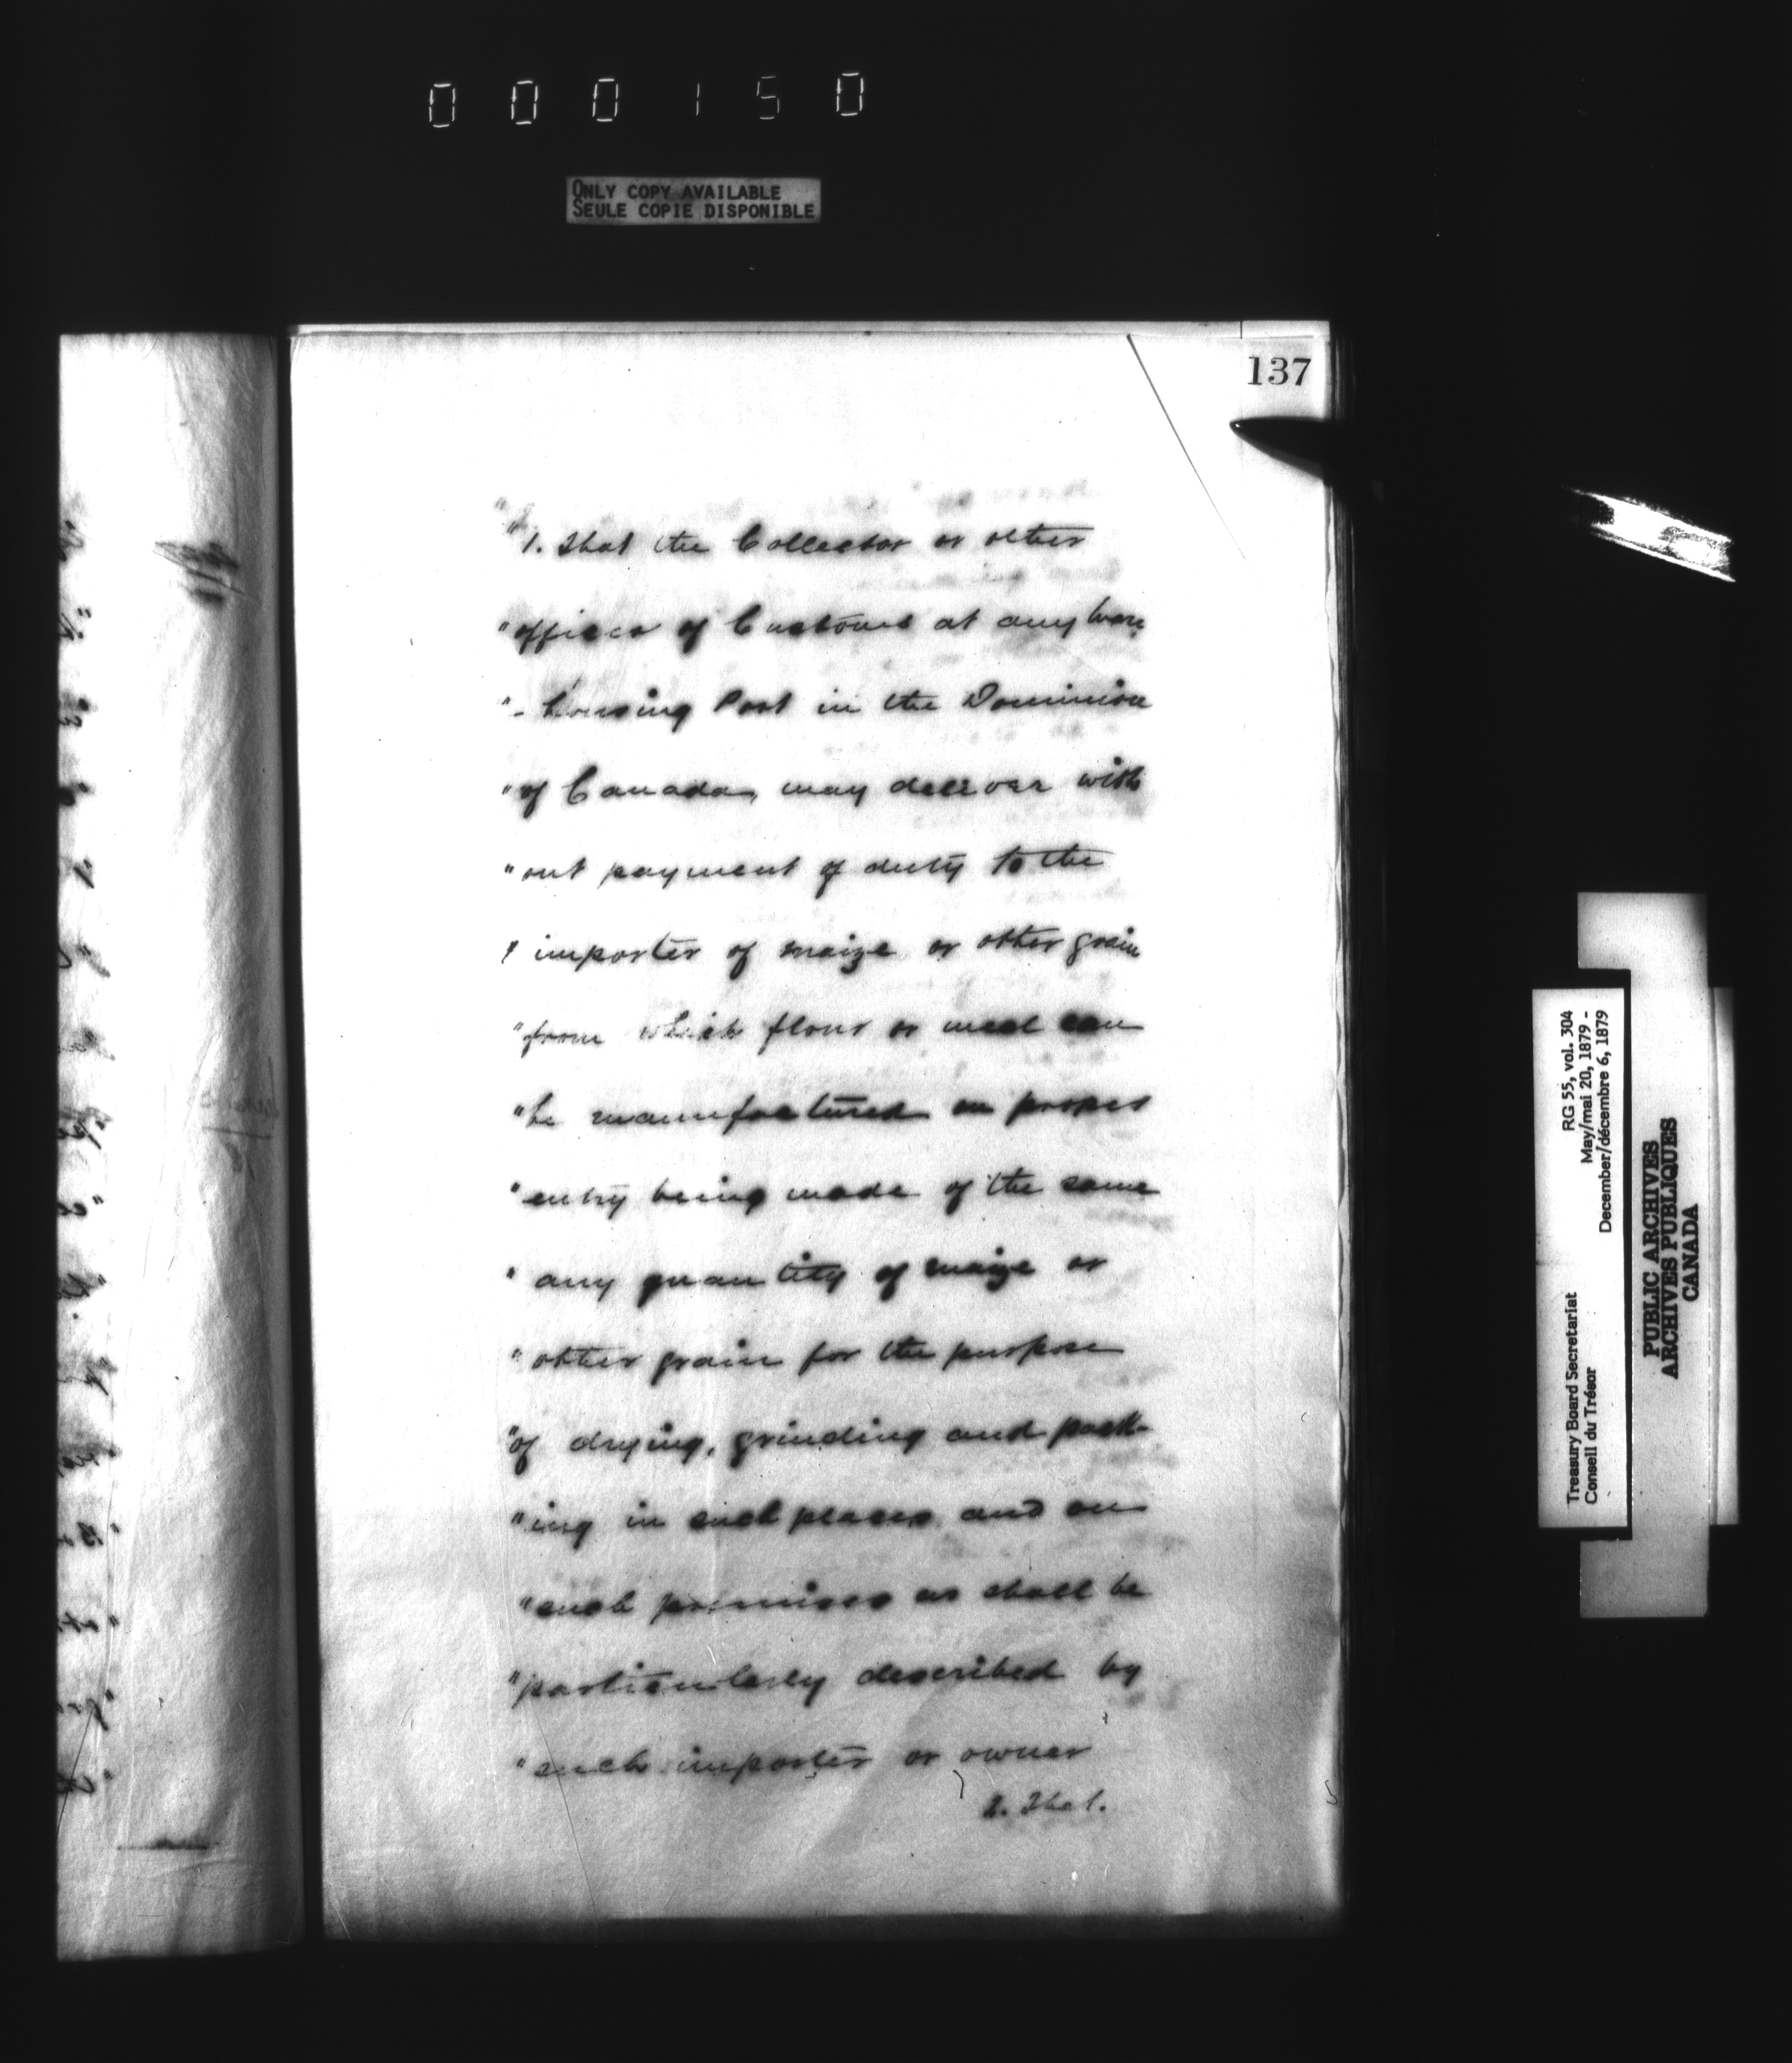 000150
ONLY COPY AVAILABLE
SEULE COPIE DISPONIBLE
137
"1. That the Collector or other
"officer of Customs at any ware
"-housing Port in the Dominion
"of Canada, may deliver with
"out payment of duty to the
" importer of maize or other grain
"from which flour or meal can
"be manufactured on proper
"entry being made of the same
" any quantity of maize or
" other grain for the purpose
"of drying, grinding and pack-
"ing in such places and on
"such premises as shall be
"particularly described by
"such importer or owner
2. That.
Treasury Board Secretariat RG 55, vol. 304
Conseil du Trésor May/mai 20, 1879 -
December/décembre 6, 1879
PUBLIC ARCHIVES
ARCHIVES PUBLIQUES
CANADA